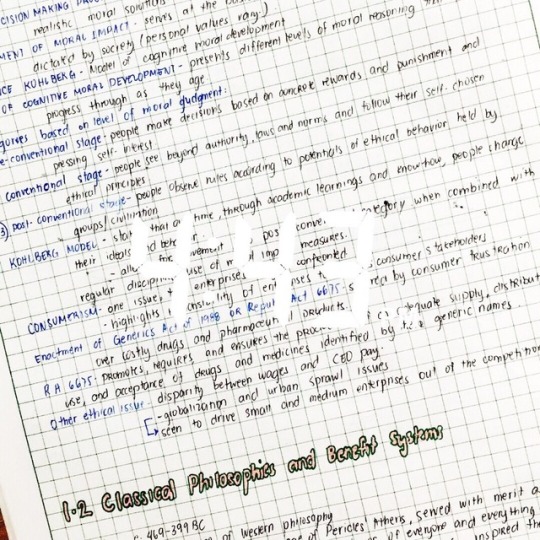 CISION MAKING
realistic moral solutions
MENT OF MORAL IMPACT - serves at the
dictated by society (personal values vary)
CE KOHLBERG - Model of cognitive moral development
OF COGNITIVE MORAL DEVELOPMENT - presents different levels of moral reasoning
progress through as they age
gories based on level of moral judgment:
e-conventional stage - people make decisions based on concrete rewards and punishment and
pressing self-interest
conventional stage - people see beyond authority, laws and norms and follow their self-chosen
ethical principles
3) post-conventional stage - people observe rules according to potentials of ethical behavior held by
groups/civilization
KOHLBERG MODEL - that a time, through academic learnings and knowhow, people change
their ideals and category when combined with
regular use of measures.
CONSUMERISM - one issue, enterprises confronted consumer stakeholders
- highlights by consumer frustration
Enactment of Generics Act of 1988 or Act 6675 - is
over costly drugs and products
R.A 6675 - promotes, requires, and ensures the supply, distribut
use, and acceptance of drugs and medicines identified by generic names.
Other ethical issue - disparity between wages and CEO pay
- globalization and urban sprawl issues
seen to drive small and medium enterprises out of the competition
4:43
1.2 Classical Philosophies and Benefit Systems
469-399 BC
of western philosophy
of Pericles' Athens, served with merit a
of everyone and everything
inspired